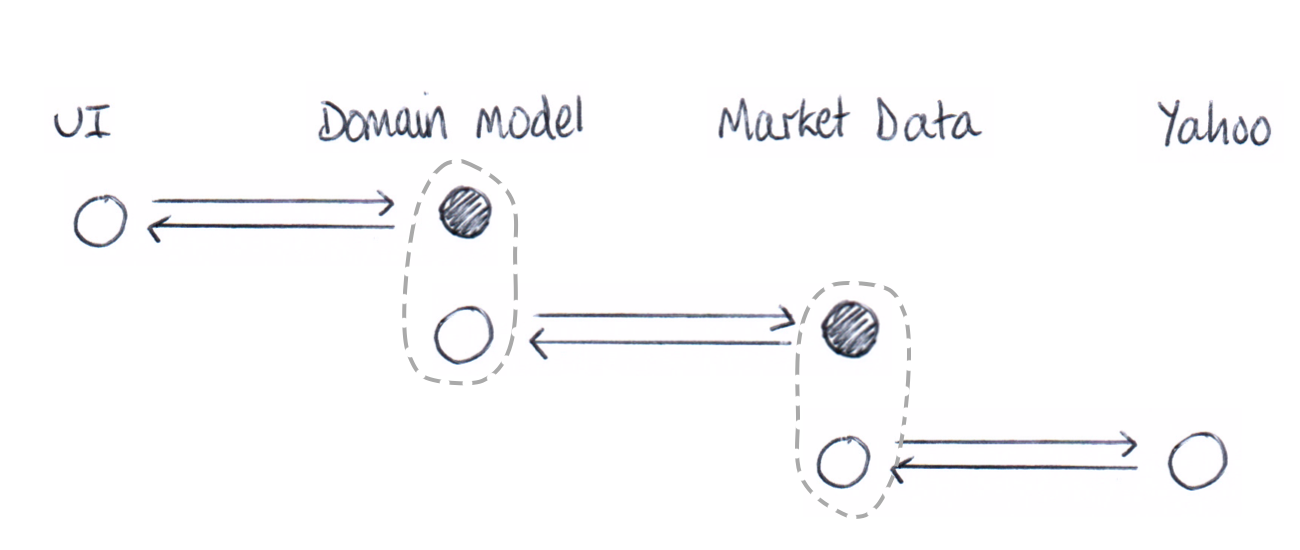 UI Domain model Market Data Yahoo